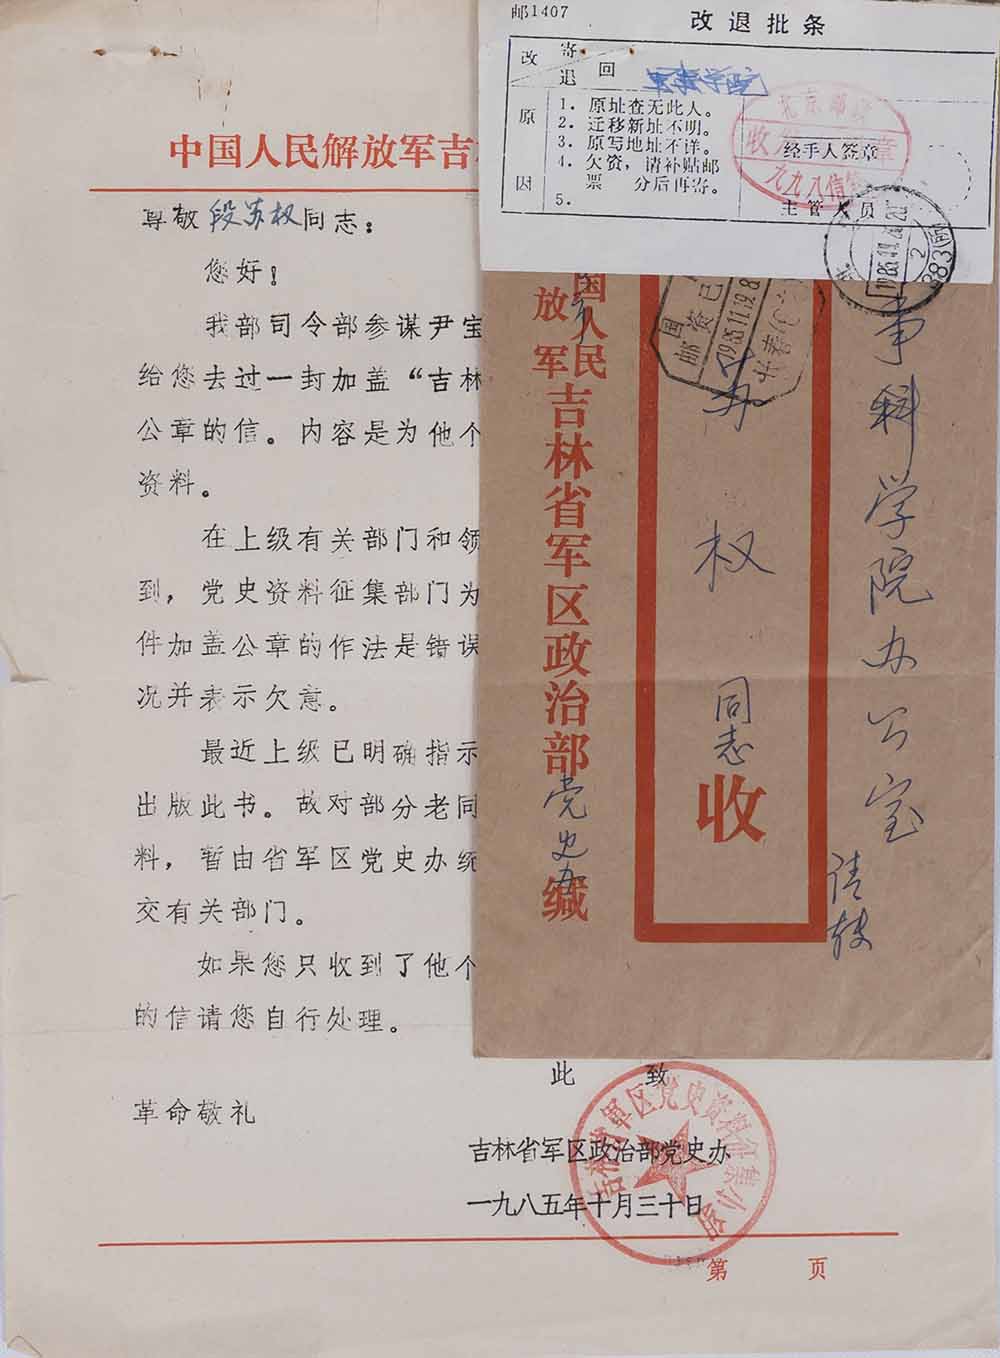 中国人民解放军吉
尊敬段苏权同志：
您好！
我部司令部参谋尹宝
给您去过一封加盖“吉林
公章的信。内容是为他个
资料。
在上级有关部门和领
到，党史资料征集部门为
件加盖公章的作法是错误
况并表示欠意。
最近上级已明确指示
出版此书。故对部分老同
料，暂由省军区党史办统
交有关部门。
如果您只收到了他个
的信请您自行处理。
此 致
革命敬礼
吉林省军区政治部党史办
一九八五年十月三十日
第 页
邮1407
改退批条
改 寄
退 回
原因
1. 原址查无此人。
2. 迁移新址不明。
3. 原写地址不详。
4. 欠资，请补贴邮
票 分后再寄。
5.
经手人签章
主管人员
事科学院办公室
请转
办
权
同志
收
国人民
放军
吉林省军区政治部
党史办
缄